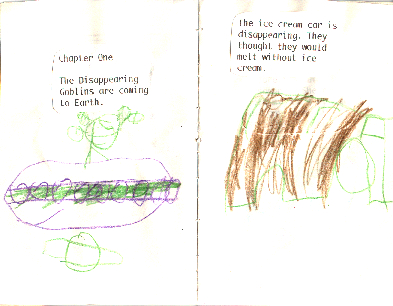 Chapter One
The Disappearing
Goblins are coming
to Earth.
The ice cream car is
disappearing. They
thought they would
melt without ice
cream.